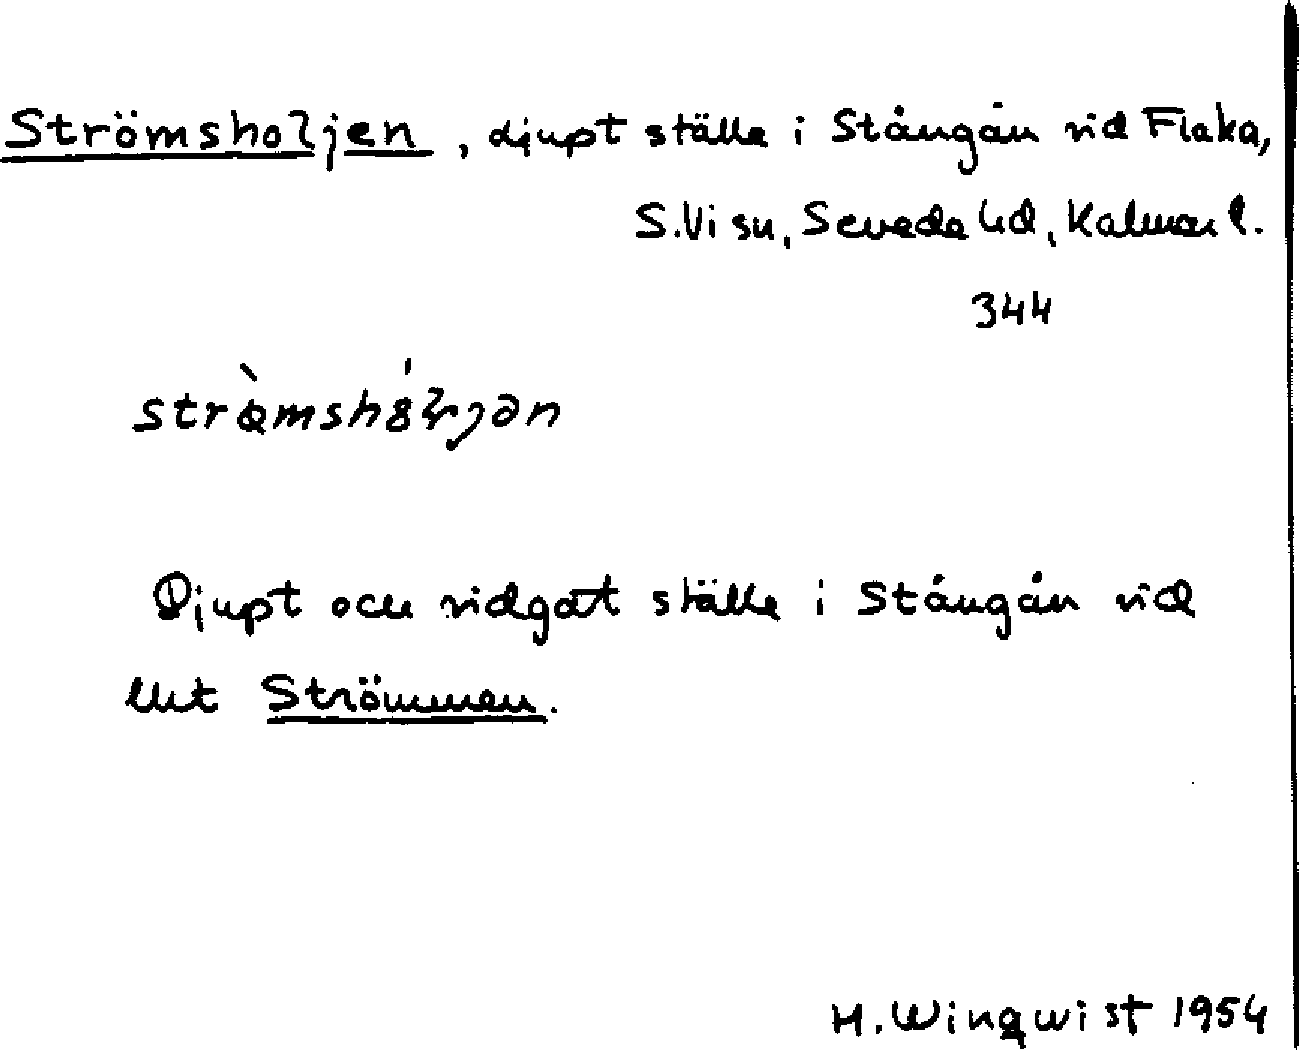 Strömsholjen, djupt ställe i Stångån vid Flaka,
S.Vi sn, Sevede hd, Kalmar l.
344
Djupt och vidgat ställe i Stångån vid
Strömmen.
H. Winqwist 1954